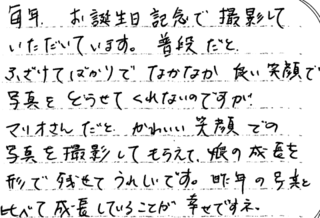 毎年、お誕生日記念で撮影して
いただいています。普段だと
ふざけてばかりでなかなか良い笑顔で
写真をとらせてくれないのですが
マリオさんだと、かわいい笑顔での
写真を撮影してもらえて、娘の成長を
形で残せてうれしいです。昨年の写真と
比べて成長していることが幸せですネ。